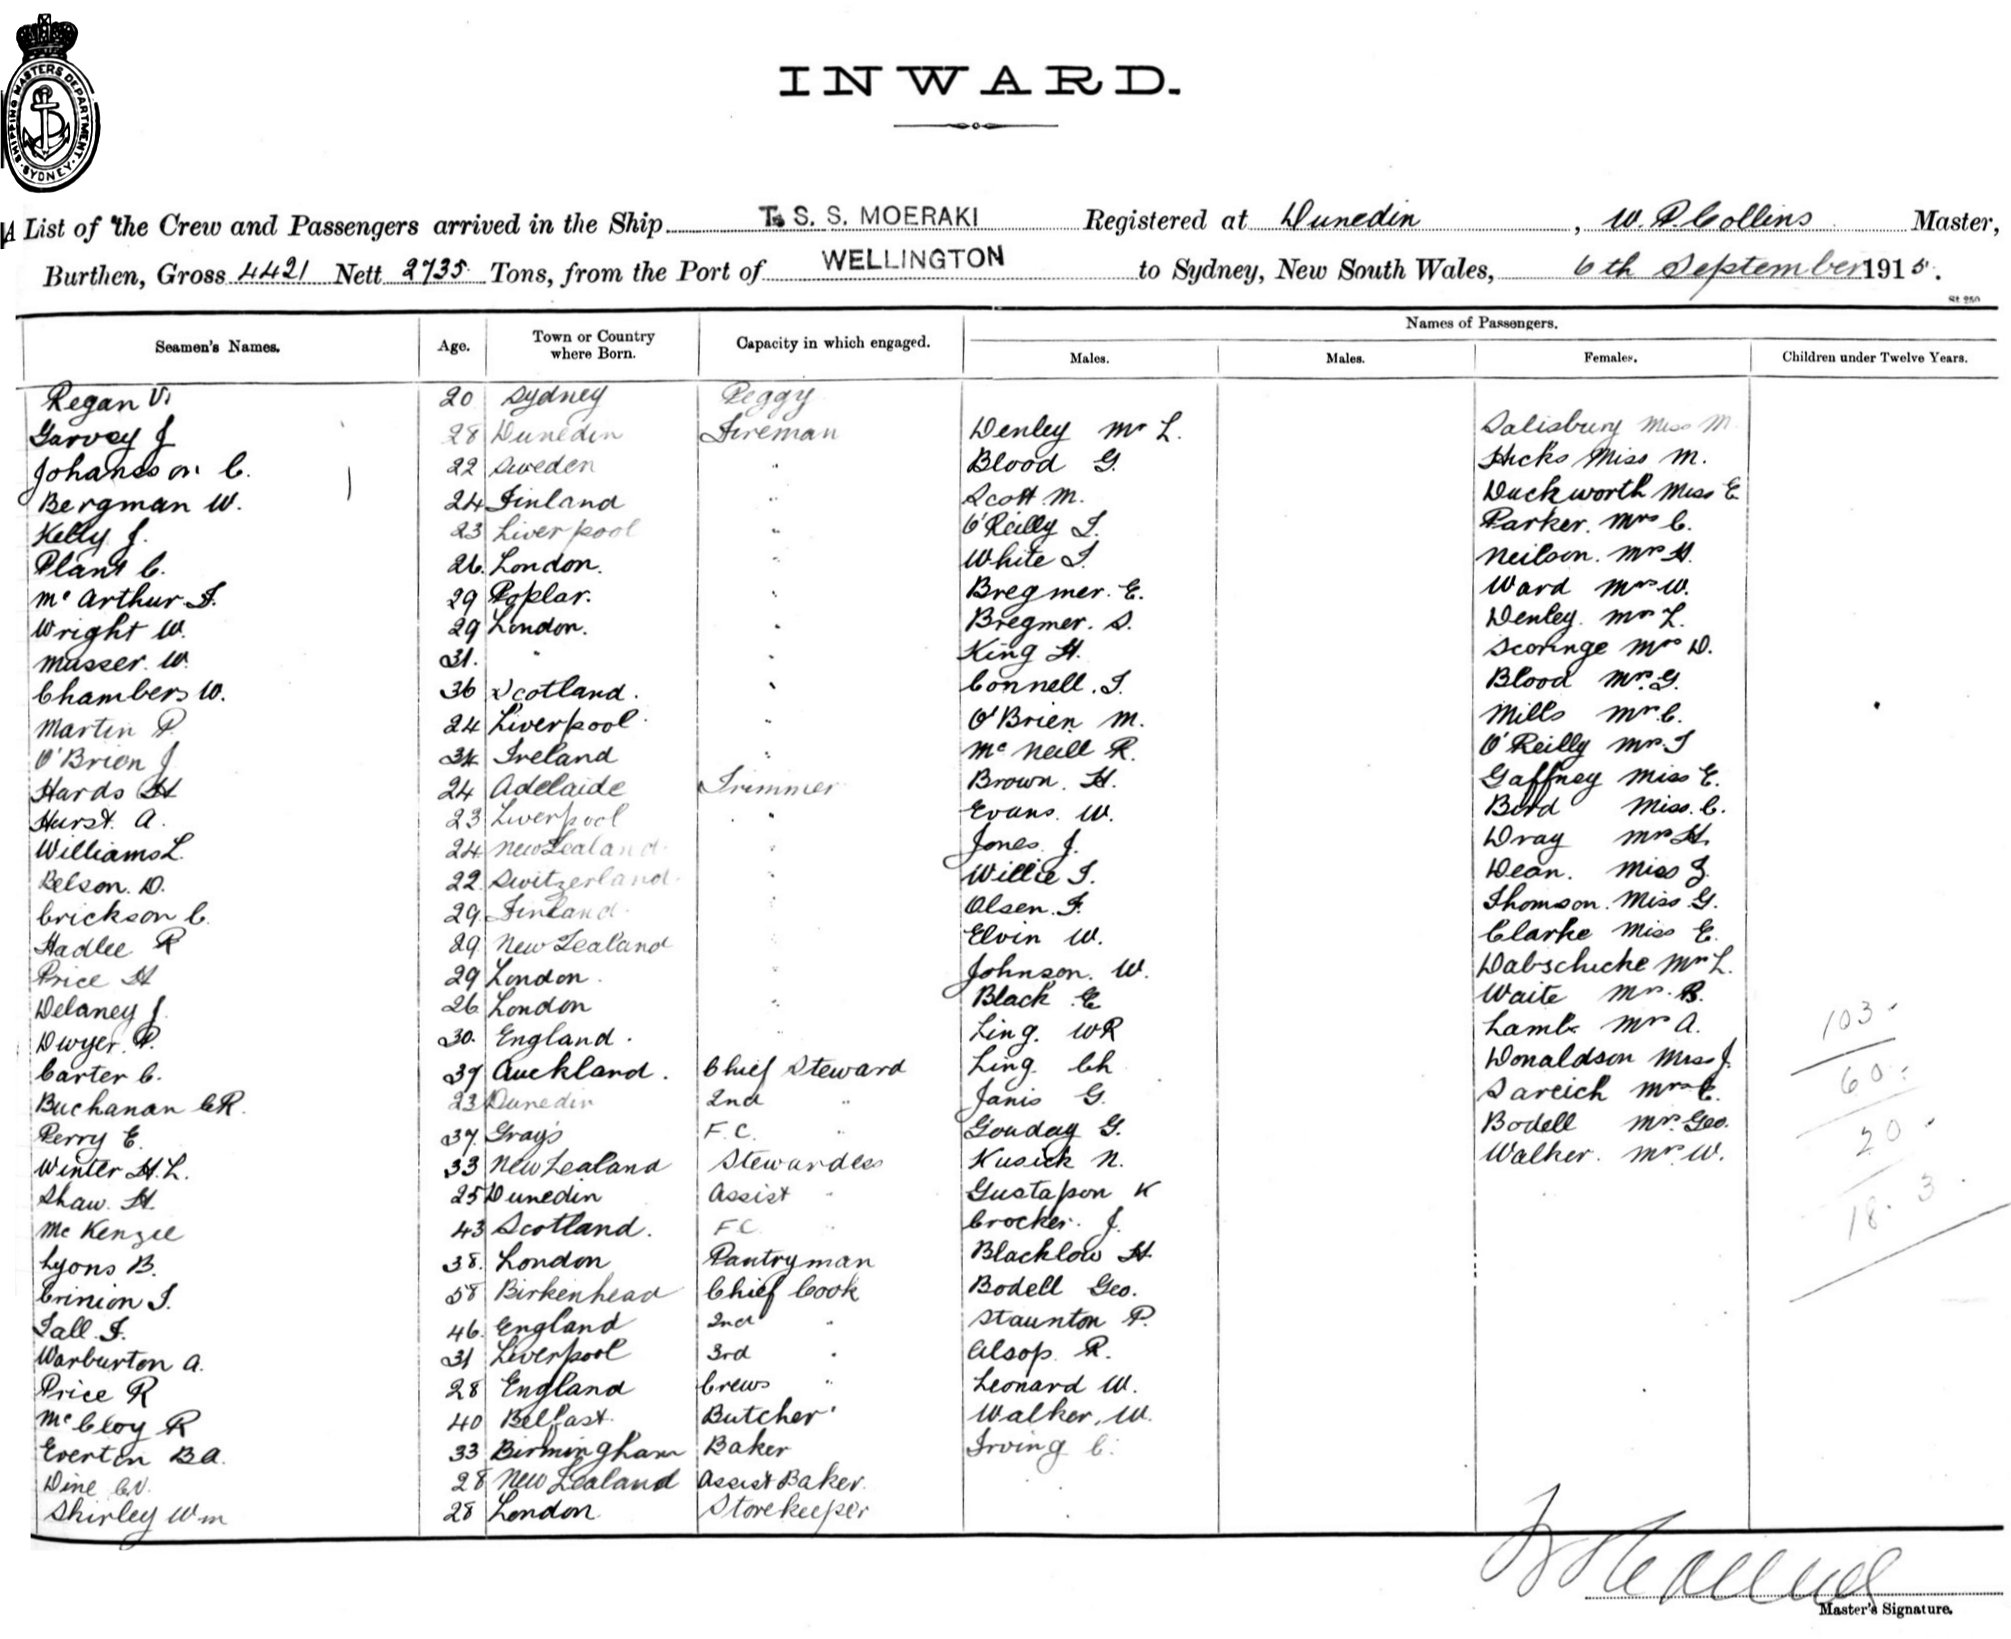 SHIPPING MASTERS DEPARTMENT. SYDNEY.
INWARD.
A List of the Crew and Passengers arrived in the Ship T. S. S. MOERAKI Registered at Dunedin, W. P. Collins Master,
Burthen, Gross 4421 Nett 2735 Tons, from the Port of WELLINGTON to Sydney, New South Wales, 6th September 1915.
St 250
Names of Passengers.
Seamen's Names. Age. Town or Country where Born. Capacity in which engaged. Males. Males. Females. Children under Twelve Years.
Regan V. 20 Sydney Peggy
Garvey J 28 Dunedin Fireman Denley Mr L. Salisbury Miss M
Johansson C. 22 Sweden " Blood G. Hicks Miss M.
Bergman W. 24 Finland " Scott M. Duckworth Miss E
Kelly J. 23 Liverpool " O'Reilly T. Parker. Mrs C.
Plant C. 26. London. " White T. Neilson. Mrs H.
Mc Arthur. F. 29 Poplar. " Bregmer. E. Ward Mrs W.
Wright W. 29 London. " Bregmer. S. Denley. Mrs L.
Masser. W. 31. " " King H. Scoringe Mrs D.
Chambers W. 36 Scotland. " Connell. T. Blood Mrs. G.
Martin P. 24 Liverpool. " O'Brien M. Mills Mrs. C.
O'Brien J 34 Ireland " Mc Neill R. O'Reilly Mrs. T
Hards H 24 Adelaide Trimmer Brown. H. Gaffney Miss E.
Hurst. A. 23 Liverpool " Evans. W. Bird Miss. C.
Williams L. 24 New Zealand. " Jones. J. Dray Mrs H.
Belson. D. 22. Switzerland. " Willie T. Dean. Miss
Erickson C. 29. Finland. " Olsen. F. Thomson. Miss. G.
Hadlee R 29 New Zealand " Elvin W. Clarke Miss E.
Price H 29 London. " Johnson. W. Dabschicke Mrs L.
Delaney J. 26 London " Black E Waite Mrs. B.
Dwyer. P. 30. England. " Ling. W R Lamb. Mrs A.
Carter C. 37 Auckland. Chief Steward Ling. Ch Donaldson Miss J.
Buchanan C R. 23 Dunedin 2nd " Janis G. Sareich Mrs C.
Perry E. 37. Grays F. C. " Gouday G. Bodell Mrs. Geo.
Winter H. L. 33 New Zealand Stewardess Kusick N. Walker. Mrs. W.
Shaw. H. 25 Dunedin Assist " Gustafson K
Mc Kenzie 43 Scotland. F C " Crocker. J.
Lyons B. 38. London Pantryman Blacklow H.
Crinion T. 58 Birkenhead Chief Cook Bodell Geo.
Tall. F. 46. England 2nd " Staunton P.
Warburton A. 31 Liverpool 3rd " Alsop. R.
Price R 28 England Crews " Leonard W.
Mc Cloy R 40 Belfast. Butcher Walker, W.
Everton B A. 33 Birmingham Baker Irving C.
Dine C V. 28 New Zealand Assist Baker.
Shirley Wm 28 London Storekeeper
103.
60.
20.
18. 3.
Master's Signature.